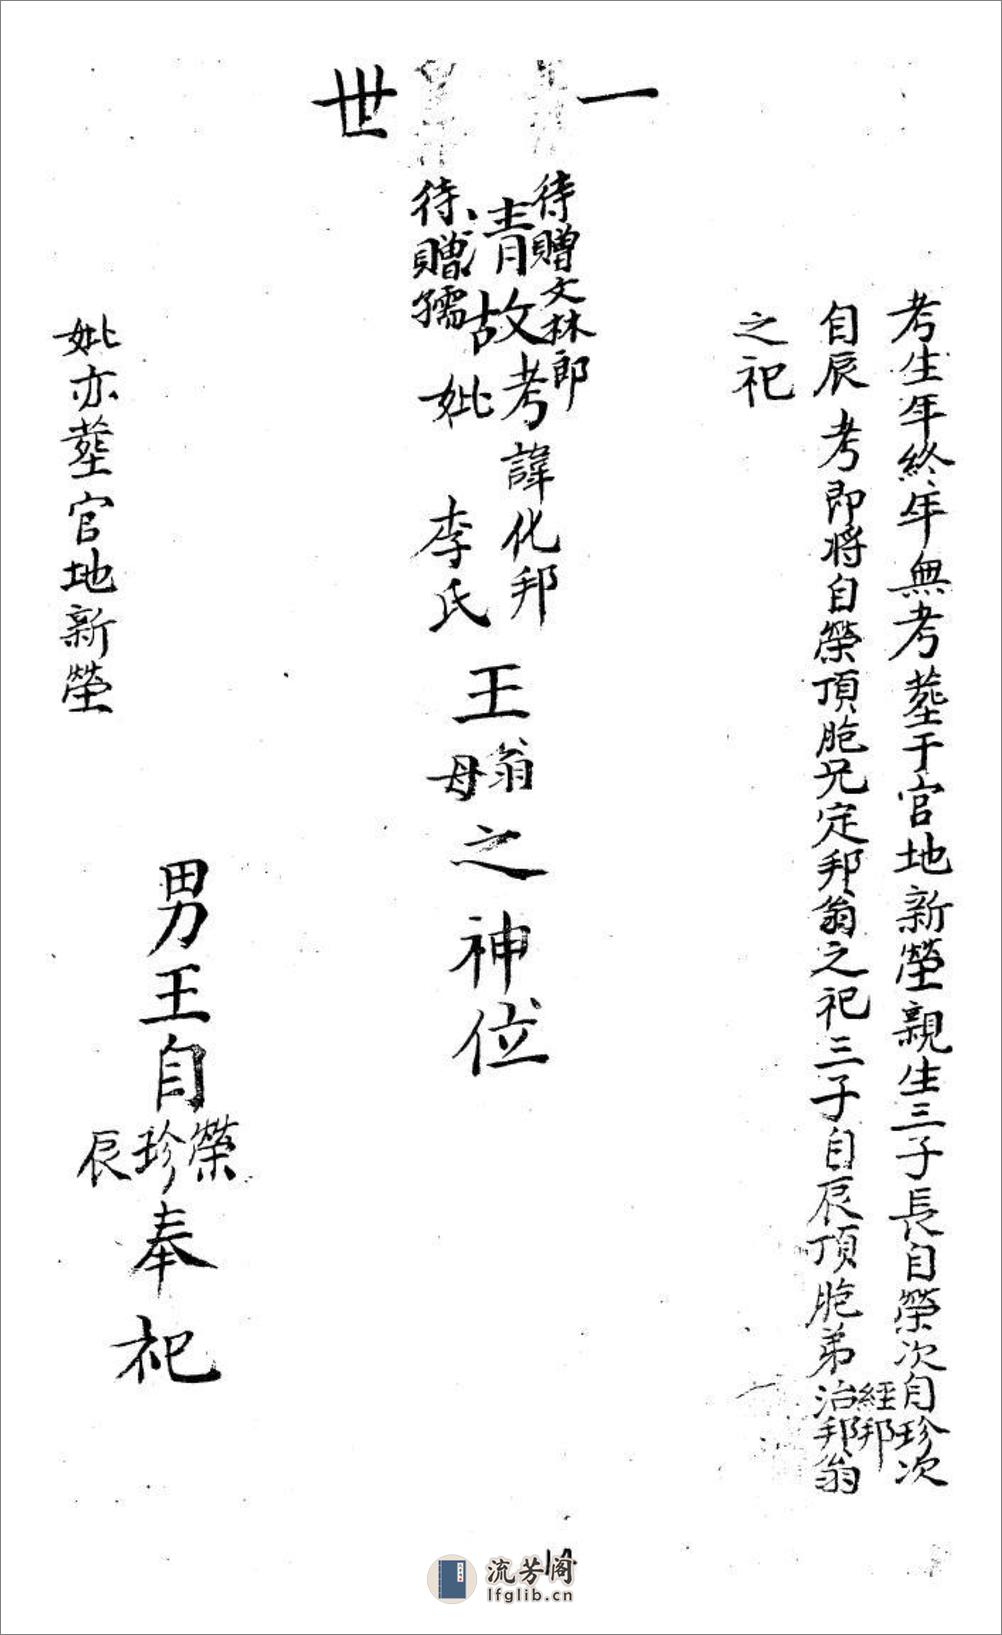 一世
考生年終年無考塟于官地新塋親生三子長自榮次自珍次
自辰 考即將自榮頂胞兄定邦翁之祀三子自辰頂胞弟經邦治邦翁
之祀
待贈文林郎
清故考諱化邦妣李氏王翁母之神位
待贈孺
男王自榮珍辰奉祀
妣亦塟官地新塋
流芳阁
lfglib.cn